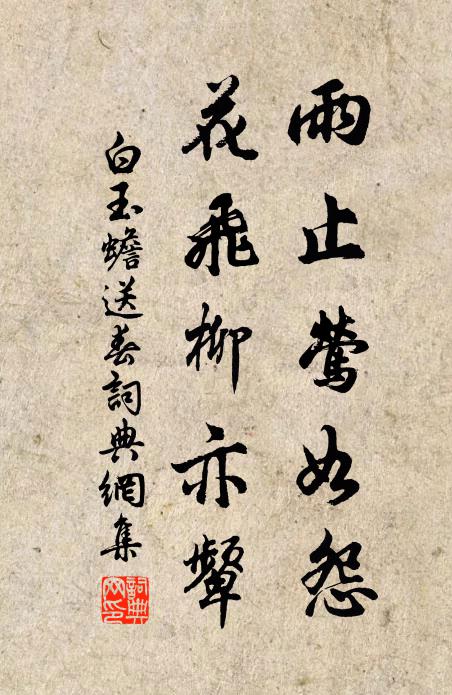 雨止鶯如怨
花飛柳亦顰
白玉蟾送春詞典網集
詞典網印